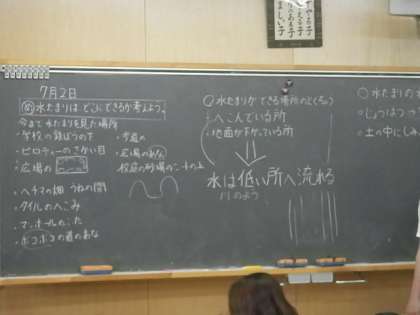 7月2日
水たまりは どこにできるか考えよう。
今まで水たまりを見た場所
・学校の鉄ぼうの下
・ピロティーのさかい目
・広場の
・ヘチマの畑 うねの間
・タイルのへこみ
・マンホールのふた
・ボコボコの道のあな
・広場のあな
校庭の砂場の
水たまりができる場所のとくちょう
・へこんでいる所
・地面が下がっている所
水は低い所へ流れる
川のよう
水たまりの
・じょうはつ
・土の中にしみ